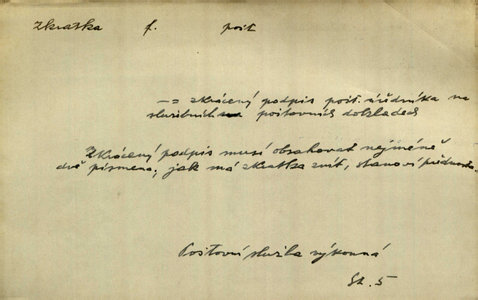 zkratka f. pošt
-= zkrácený podpis pošt. úředníka na
služebních poštovních dokladech
Zkrácený podpis musí obsahovat nejméně
dvě písmena, jak má zkratka znít, stanoví přednosta.
Poštovní služba výkonná
St. 5